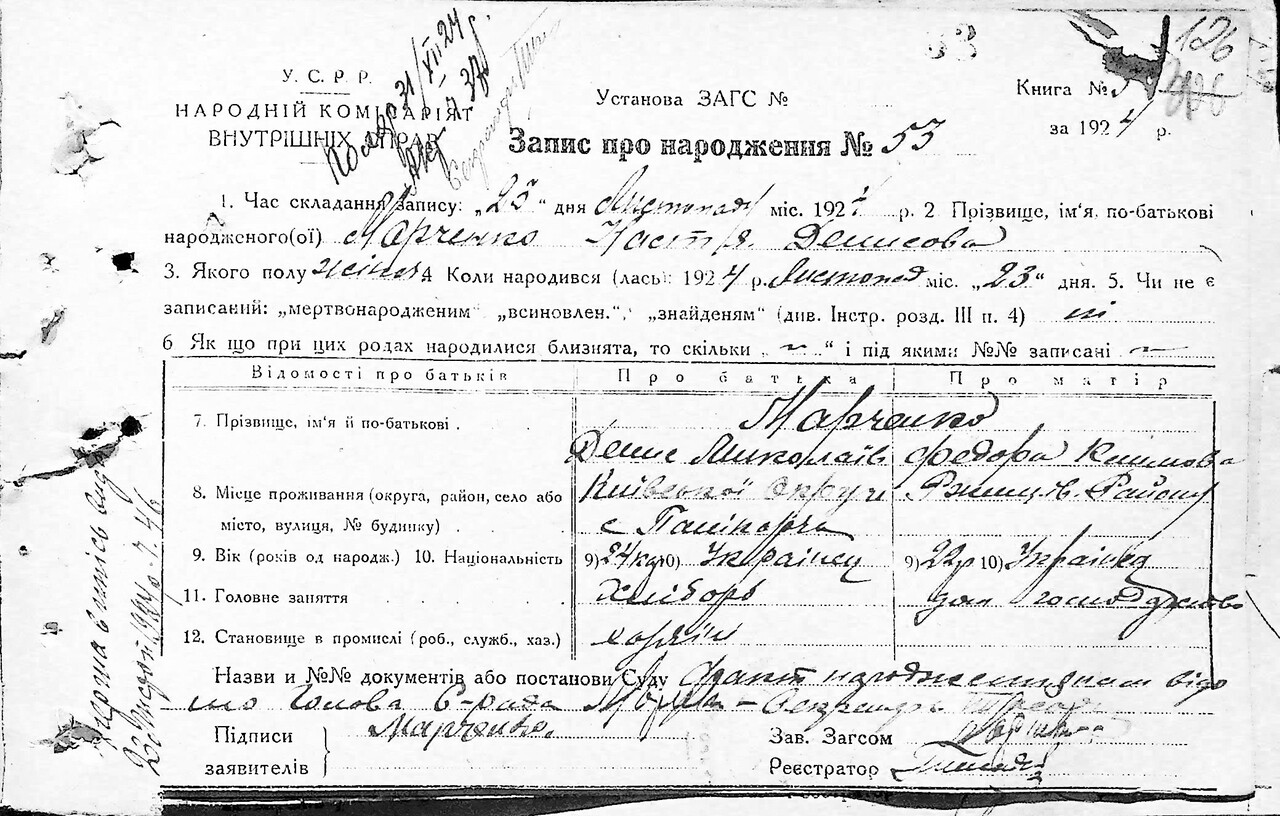 126
У. С. Р. Р.
НАРОДНІЙ КОМІСАРІЯТ
ВНУТРІШНІХ СПРАВ
31/XII 24
Установа ЗАГС №
Книга №
за 1924 р.
Запис про народження № 53
1. Час складання запису: „25" дня Листопаду міс. 1924 р. 2 Прізвище, ім'я, по-батькові
народженого(ої) Марченко Настя Денисова
3. Якого полу жіноч 4 Коли народився (лась): 1924 р. Листопад міс. „23" дня. 5. Чи не є
записаний: „мертвонародженим" „всиновлен.", „знайденям" (див. Інстр. розд. III п. 4) ні
6 Як що при цих родах народилися близнята, то скільки „ — " і під якими №№ записані —
Відомості про батьків Про батька Про матір
7. Прізвище, ім'я й по-батькові . Марченко
Денис Миколаїв Федора Климова
8. Місце проживання (округа, район, село або Київської Округи Ржищів. Району
місто, вулиця, № будинку) . с
9. Вік (років од народж.) 10. Національність 9) 24 10) Українец 9) 22 р 10) Українка
11. Головне заняття Хлібороб дом господарство
12. Становище в промислі (роб., служб., хаз.) хазяїн
Назви и №№ документів або постанови Суду факт народження
Голова С-рада Секретарь
Підписи Марченко. Зав. Загсом
заявителів Реєстратор